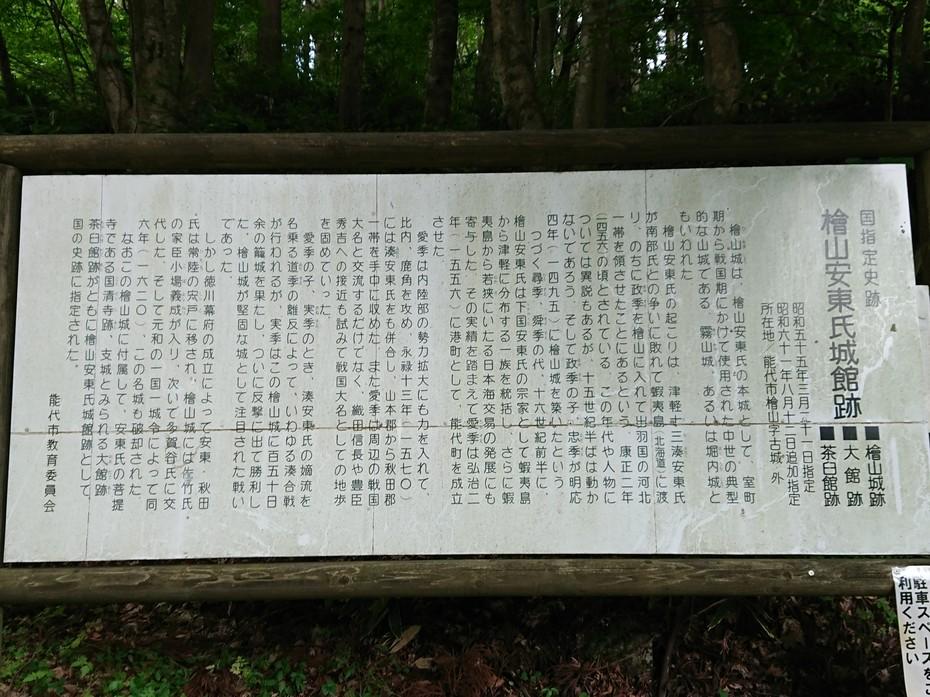 国指定史跡
檜山安東氏城館跡
■檜山城跡
■大館跡
■茶臼館跡
昭和五十五年三月二十一日指定
昭和六十一年八月十二日追加指定
所在地 能代市檜山字古城 外
檜山城は、檜山安東氏の本城として、室町
期から戦国期にかけて使用された中世の典型
的な山城である。霧山城、あるいは堀内城と
もいわれた。
檜山安東氏の起こりは、津軽十三湊安東氏
が南部氏との争いに敗れて蝦夷島(北海道)に渡
り、のちに政季を檜山に入れて出羽国の河北
一帯を領させたことにあるという。康正二年
(一四五六)の頃とされている。この年代や人物に
ついては異説もあるが、十五世紀半ばは動か
ないであろう。そして政季の子、忠季が明応
四年(一四九五)に檜山城を築いたという。
つづく尋季、舜季の代、十六世紀前半に、
檜山安東氏は下国安東氏の宗家として蝦夷島
から津軽に分布する一族を統括し、さらに蝦
夷島から若狭にいたる日本海交易の発展にも
寄与した。その実績を踏まえて愛季は弘治二
年(一五五六)に港町として、能代町を成立
させた。
愛季は内陸部の勢力拡大にも力を入れて、
比内、鹿角を攻め、永禄十三年(一五七〇)
には湊安東氏をも併合し、山本郡から秋田郡
一帯を手中に収めた。また愛季は周辺の戦国
大名と交流するだけでなく、織田信長や豊臣
秀吉への接近も試みて戦国大名としての地歩
を固めていった。
愛季の子、実季のとき、湊安東氏の嫡流を
名乗る道季の離反によって、いわゆる湊合戦
が行われるが、実季はこの檜山城に百五十日
余の籠城を果たし、ついに反撃に出て勝利し
た。檜山城が堅固な城として注目された戦い
であった。
しかし徳川幕府の成立によって安東・秋田
氏は常陸の宍戸に移され、檜山城には佐竹氏
の家臣小場義成が入り、次いで多賀谷氏に交
代した。そして元和の一国一城令によって同
六年(一六二〇)、この名城も破却された。
なおこの檜山城に付属して、安東氏の菩提
寺である国清寺跡、支城とみられる大館跡、
茶臼館跡がともに檜山安東氏城館跡として、
国の史跡に指定された。
能代市教育委員会
駐車スペースをご
利用ください